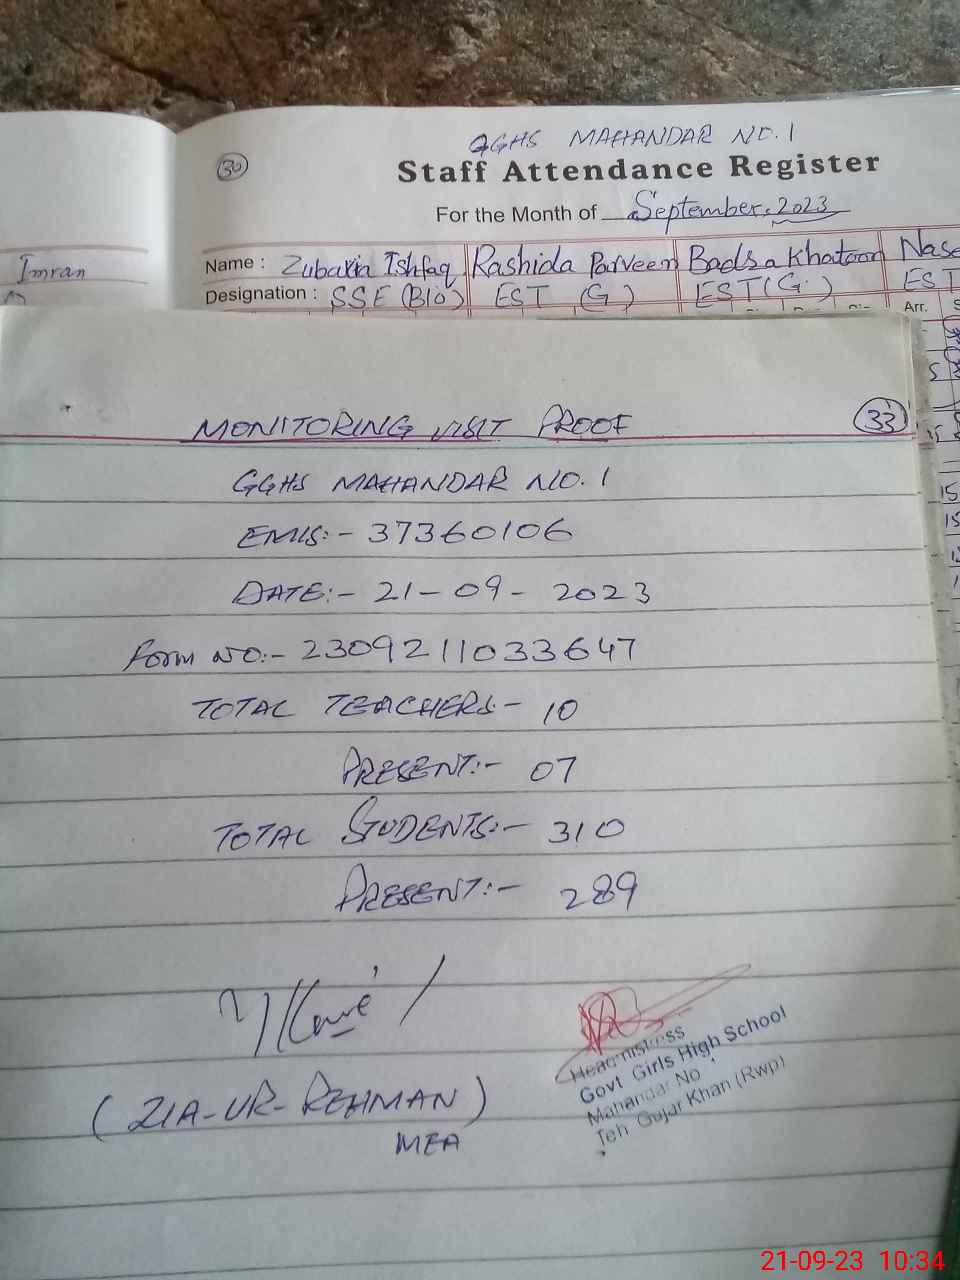 GGHS MAHANDAR NO. 1
30
Staff Attendance Register
For the Month of September, 2023
Imran
Name : Zubaria Ishfaq Rashida Parveen Badsa Khatoon Nase
Designation : SSE (BIO) EST (G) EST (G) EST
Arr.
MONITORING VISIT PROOF
33
GGHS MAHANDAR NO. 1
EMIS:- 37360106
DATE:- 21-09-2023
Form NO:- 2309211033647
TOTAL TEACHERS- 10
PRESENT:- 07
TOTAL STUDENTS:- 310
PRESENT:- 289
(ZIA-UR-REHMAN)
MEA
Headmistress
Govt Girls High School
Mahandar No 1
Teh Gujar Khan (Rwp)
21-09-23 10:34